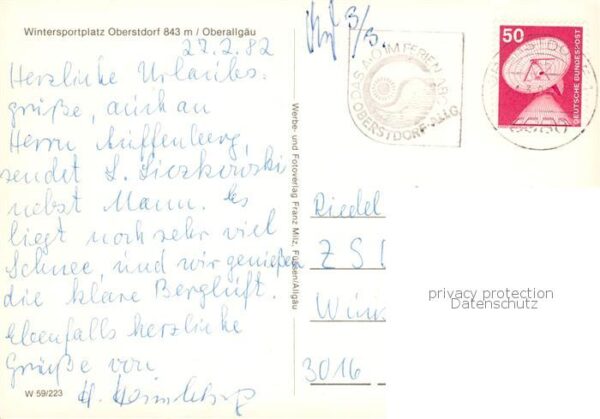 Wintersportplatz Oberstdorf 843 m / Oberallgäu
22.2.82
Herzliche Urlaubs-
grüße, auch an
Herrn Auffenberg,
sendet
nebst Mann. Es
liegt noch sehr viel
Schnee, und wir genießen
die klare Bergluft.
Ebenfalls herzliche
Grüße von
H.
W 59/223
Werbe- und Fotoverlag Franz Milz, Füssen/Allgäu
3/3
DAS A-O IM FERIEN-ABC
OBERSTDORF-ALLG.
50
DEUTSCHE BUNDESPOST
Riedel
Z S
3016
privacy protection
Datenschutz